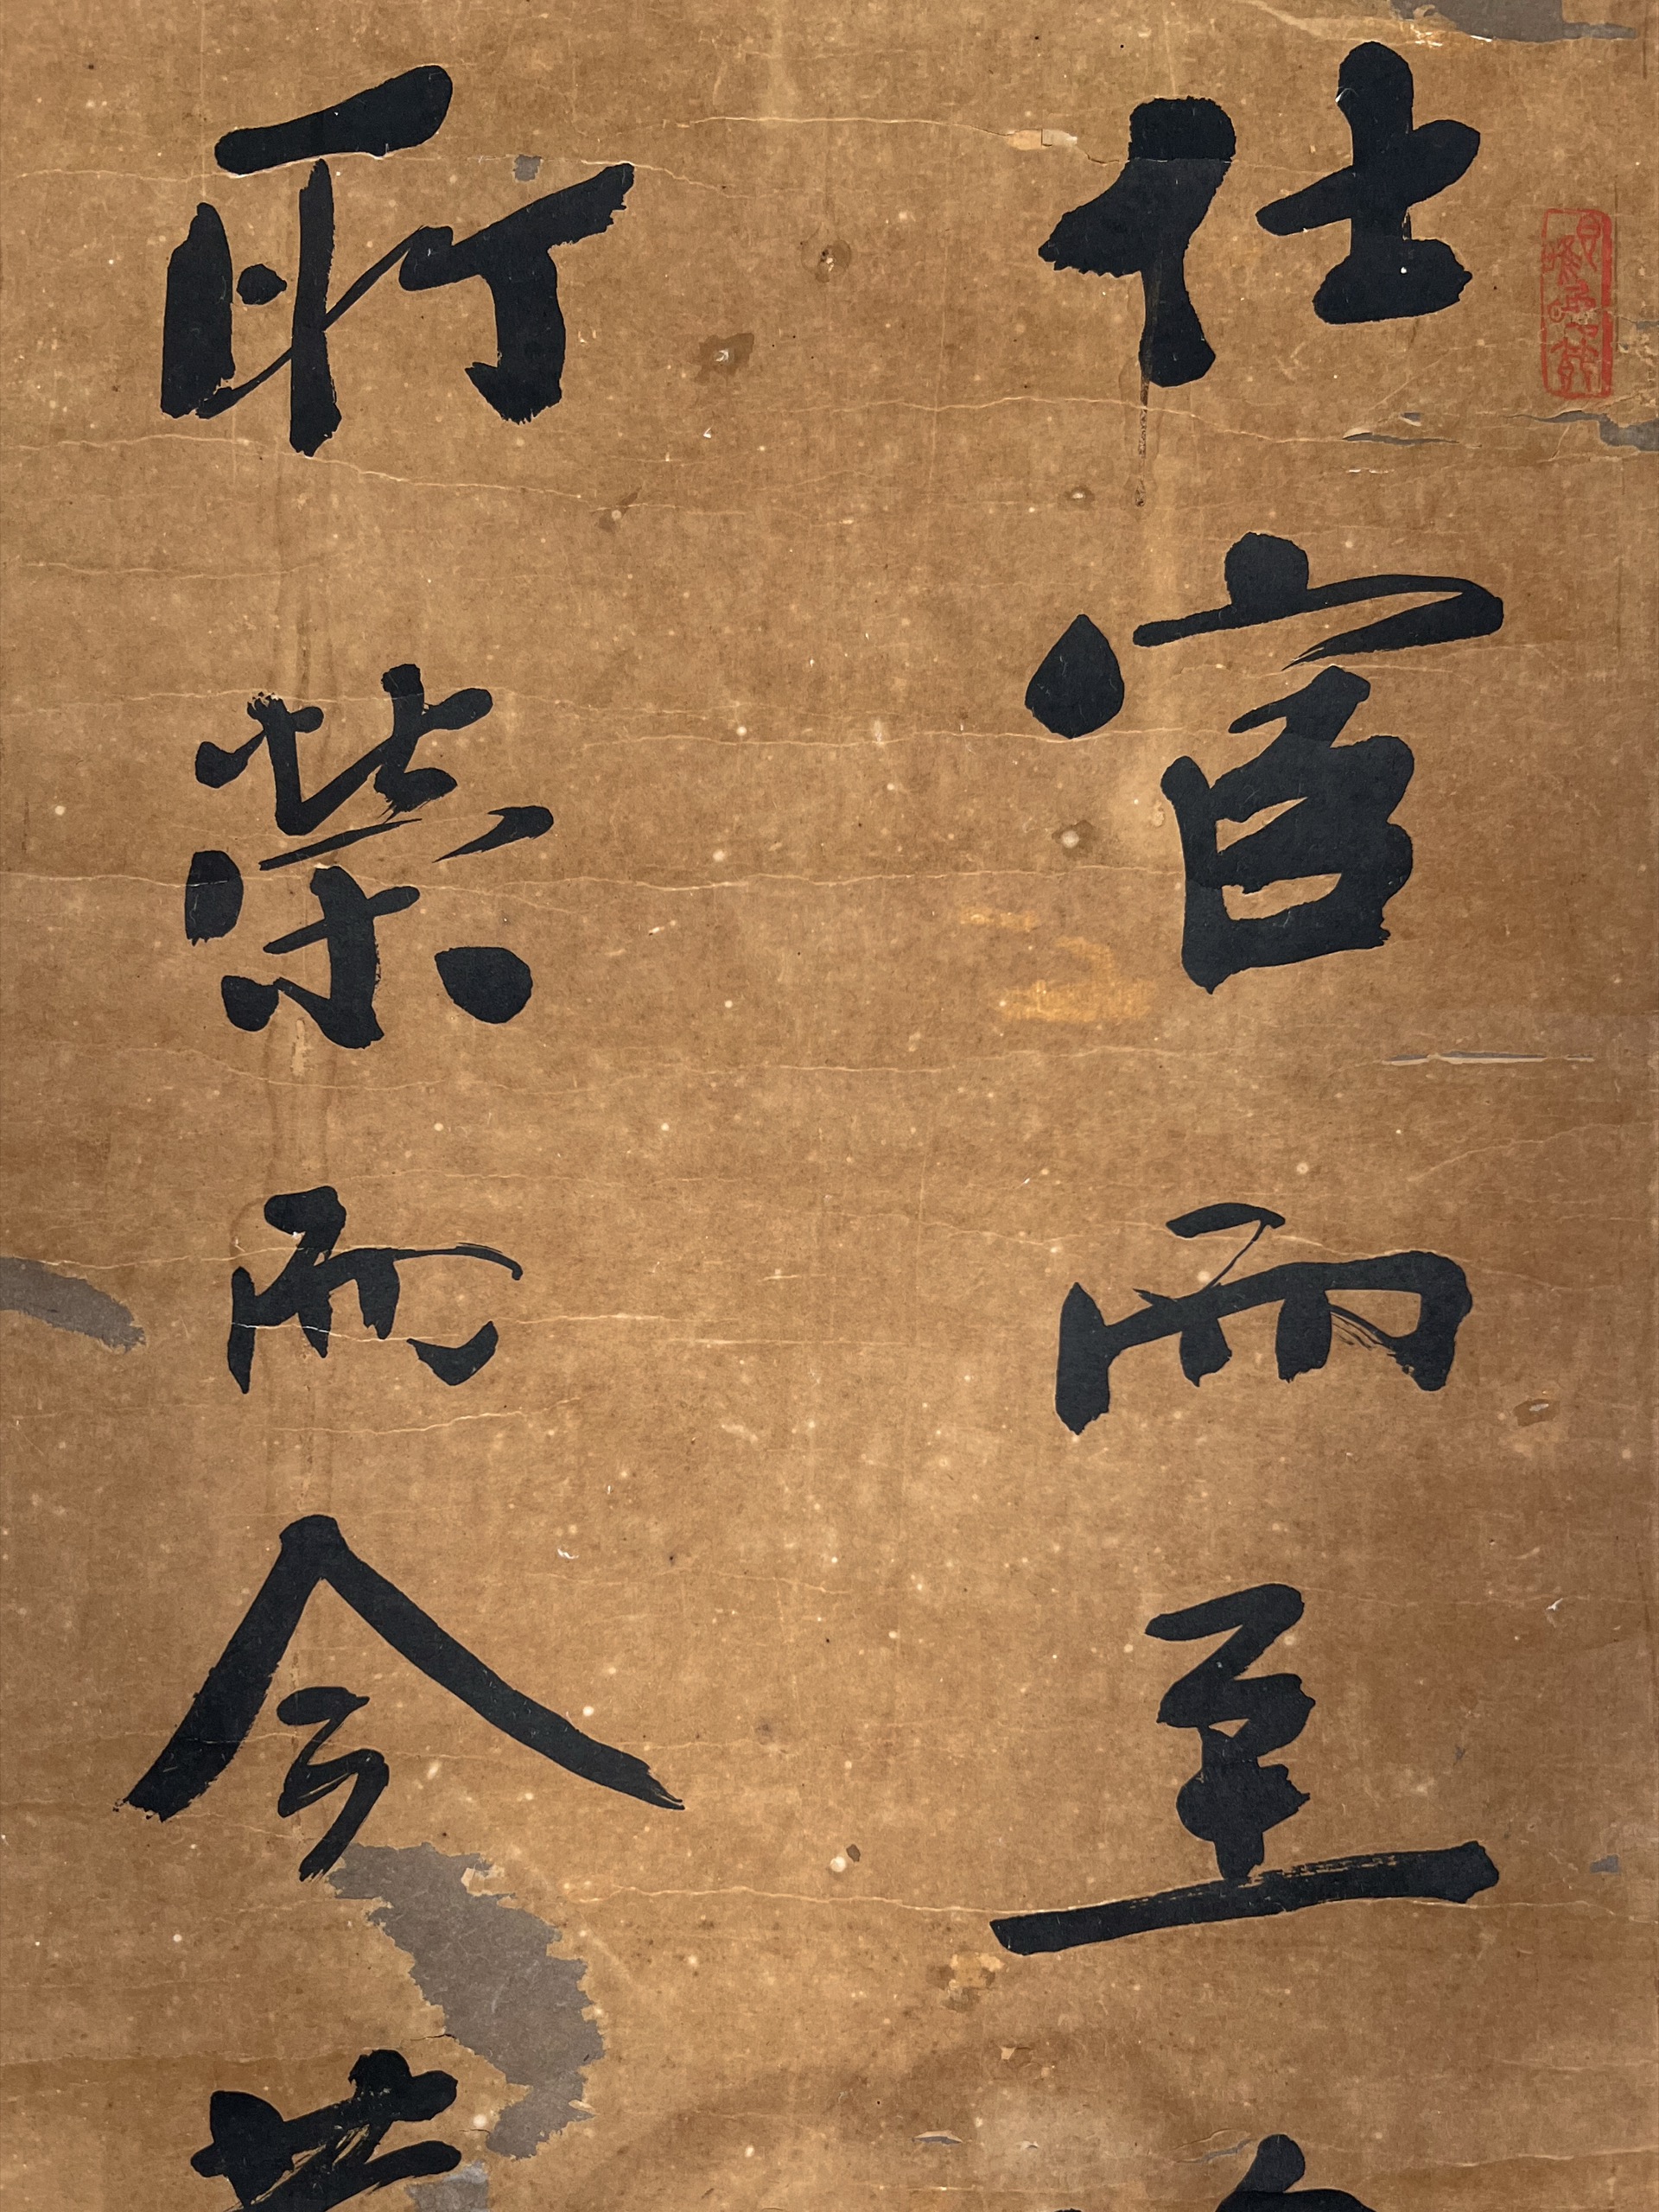 仕宦而至
所榮而今昔